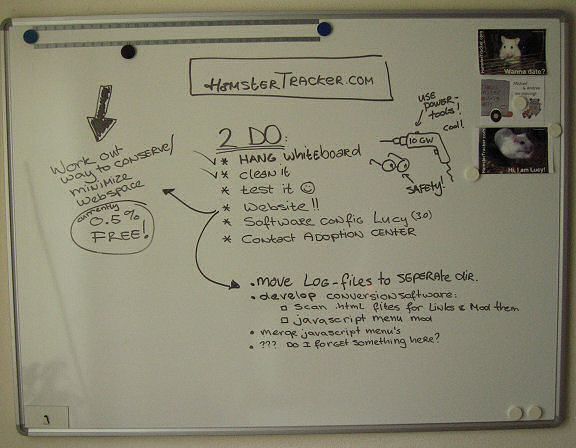 HAMSTERTRACKER.COM
Work out
way to conserve/
minimize
webspace
currently
0.5%
FREE!
2 DO:
* HANG Whiteboard
* clean it
* test it
* Website!!
* Software config Lucy (3.0)
* Contact ADOPTION CENTER
USE
POWER-
TOOLS!
cool!
10 GW
SAFETY!
• move LOG-files to SEPERATE dir.
• develop conversionsoftware:
Scan .html files for Links & Mod them
javascript menu mod
• merge javascript menu's
• ??? DO I FORGET something here?
HamsterTracker.com
Wanna date?
Michael
& Andrea
are moving!
HamsterTracker.com
Hi, I am Lucy!